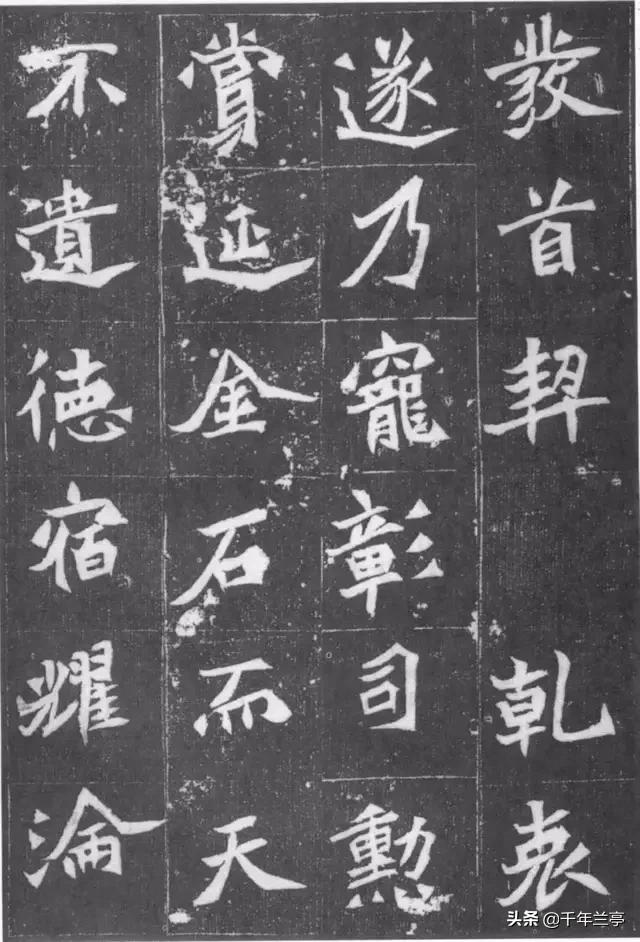 發首契 乾衷
遂乃寵彰司勳
賞延金石而天
不遺德宿耀淪
头条 @千年兰亭